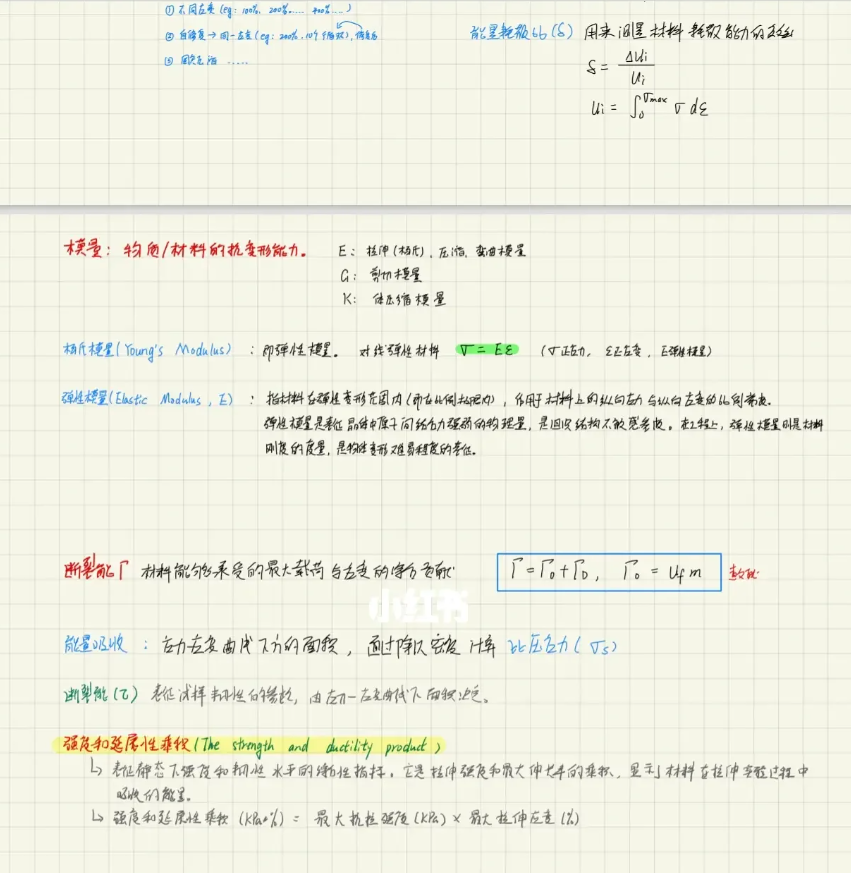 ① 不同应变(eg: 100%、200%..... 400%....)
② 自修复→同一应变(eg: 200%, 10个循环),
③
能量耗散比(δ) 用来测量材料耗散能力的
δ = ΔUi / Ui
Ui = ∫₀^σmax σ dε
模量:物质/材料的抗变形能力。 E:拉伸(杨氏),压缩,弯曲模量
G:剪切模量
K:体压缩模量
杨氏模量(Young's Modulus) :即弹性模量。 对线弹性材料 σ = Eε (σ正应力, ε正应变, E弹性模量)
弹性模量(Elastic Modulus, E) :指材料在弹性变形范围内(即在比例极限内),作用于材料上的纵向应力与纵向应变的比例常数。
弹性模量是表征晶体中原子间结合力强弱的物理量,是组织结构不敏感参数。在工程上,弹性模量则是材料
刚度的度量,是物体变形难易程度的表征。
断裂能Γ 材料能够承受的最大载荷与应变的 Γ = Γ₀ + ΓD, Γ₀ = Uf m
小红书
能量吸收 :应力应变曲线下方的面积,通过除以密度计算 比压应力(σs)
断裂能(τ) 表征试样韧性的参数,由应力-应变曲线下面积决定。
强度和延展性乘积(The strength and ductility product)
↳ 表征静态下强度和韧性水平的综合性指标。它是拉伸强度和最大伸长率的乘积,显示了材料在拉伸实验过程中
吸收的能量。
↳ 强度和延展性乘积(KPa•%) = 最大抗拉强度(KPa) × 最大拉伸应变(%)